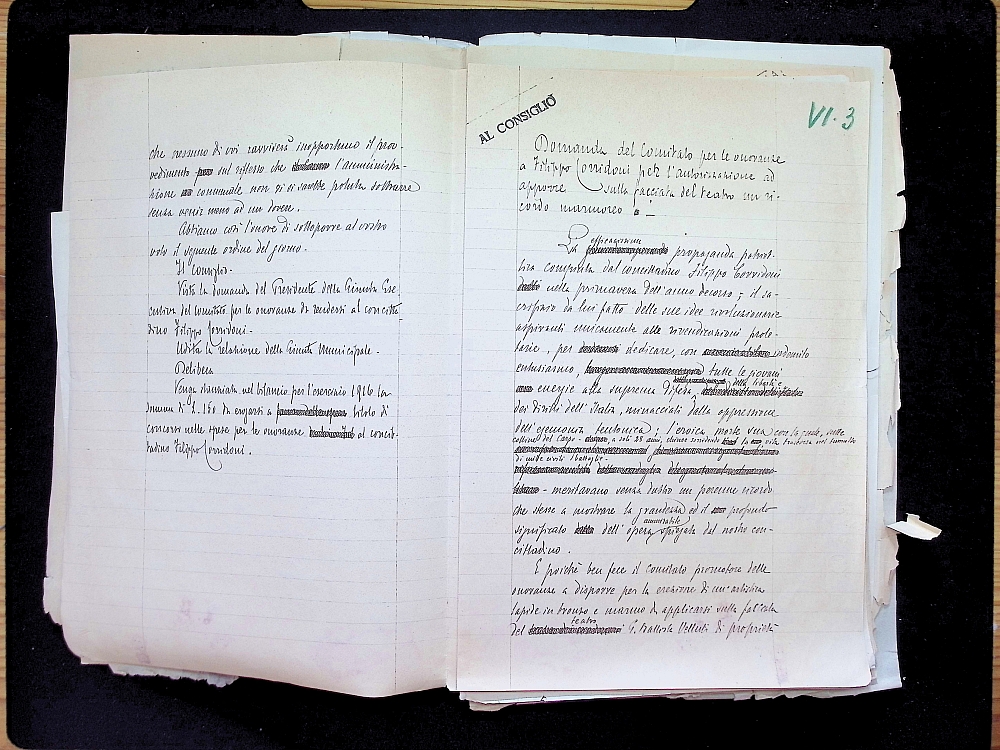 che nessuno di voi ravviserà inopportuno il prov-
vedimento sul riflesso che l'amministra-
zione comunale non vi si sarebbe potuta sottrarre
senza venir meno ad un dovere.
Abbiamo così l'onore di sottoporre al vostro
voto il seguente ordine del giorno.
Il Consiglio.
Vista la domanda del Presidente della Giunta Ese-
cutiva del comitato per le onoranze da rendersi al concitta-
dino Filippo Corridoni.
Udita la relazione della Giunta Municipale.
Delibera
Venga stanziata nel bilancio per l'esercizio 1916 la
somma di L. 150 da erogarsi a titolo di
concorso nelle spese per le onoranze al concit-
tadino Filippo Corridoni.
AL CONSIGLIO
VI. 3
Domanda del Comitato per le onoranze
a Filippo Corridoni per l'autorizzazione ad
apporre sulla facciata del teatro un ri-
cordo marmoreo
La propaganda patriot-
tica compiuta dal concittadino Filippo Corridoni
nella primavera dell'anno decorso; il sa-
crificio da lui fatto delle sue idee rivoluzionarie
aspiranti unicamente alle rivendicazioni prole-
tarie, per dedicare, con indomito
entusiasmo, tutte le giovani
energie alla suprema difesa della libertà e
dei diritti dell'Italia, minacciati dalla oppressione
dell'egemonia teutonica; l'eroica morte sua con la quale, sulle
colline del Carso a soli 28 anni, chiuse sorridendo la vita trascorsa nel tumulto
di mille civili battaglie -
- meritavano senza dubbio un perenne ricordo
che stesse a mostrare la grandezza ed il profondo
significato dell'opera ammirabile spiegata dal nostro con-
cittadino.
E poichè ben fece il comitato promotore delle
onoranze a disporre per la erezione di un'artistica
lapide in bronzo e marmo da applicarsi sulla facciata
del teatro G. Battista Velluti di proprietà